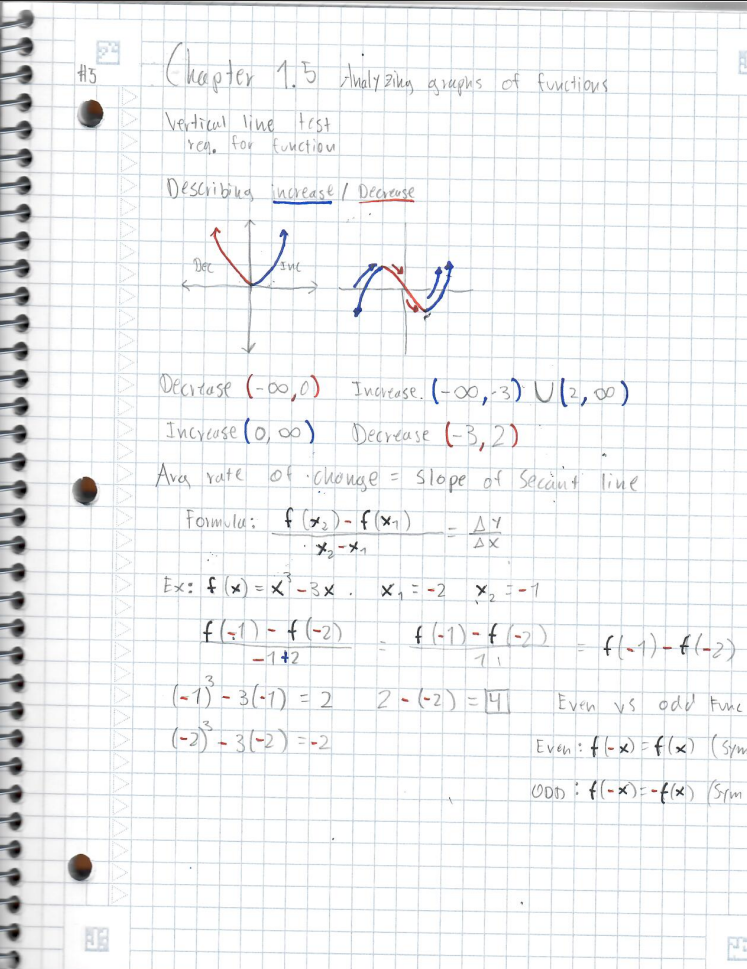 #3
Chapter 1.5 Analyzing graphs of functions
Vertical line test
req. for function
Describing increase / Decrease
Dec Inc
Decrease (-∞,0) Increase. (-∞,-3) ∪ (2, ∞)
Increase (0, ∞) Decrease (-3, 2)
Avg rate of change = Slope of Secant line
Formula: f(x₂) - f(x₁) / x₂ - x₁ = ΔY / ΔX
Ex: f(x) = x³ - 3x. x₁ = -2 x₂ = -1
f(-1) - f(-2) / -1+2 = f(-1) - f(-2) / 1 = f(-1) - f(-2)
(-1)³ - 3(-1) = 2 2 - (-2) = 4 Even vs odd Func
(-2)³ - 3(-2) = -2 Even: f(-x) = f(x) (Sym
ODD: f(-x) = -f(x) (Sym